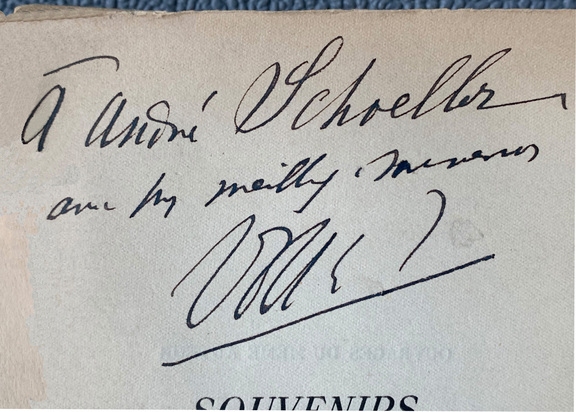 À André Schoeller
avec my meilleurs souvenirs
OUVRAGES DU MÊME AUTEUR
SOUVENIRS